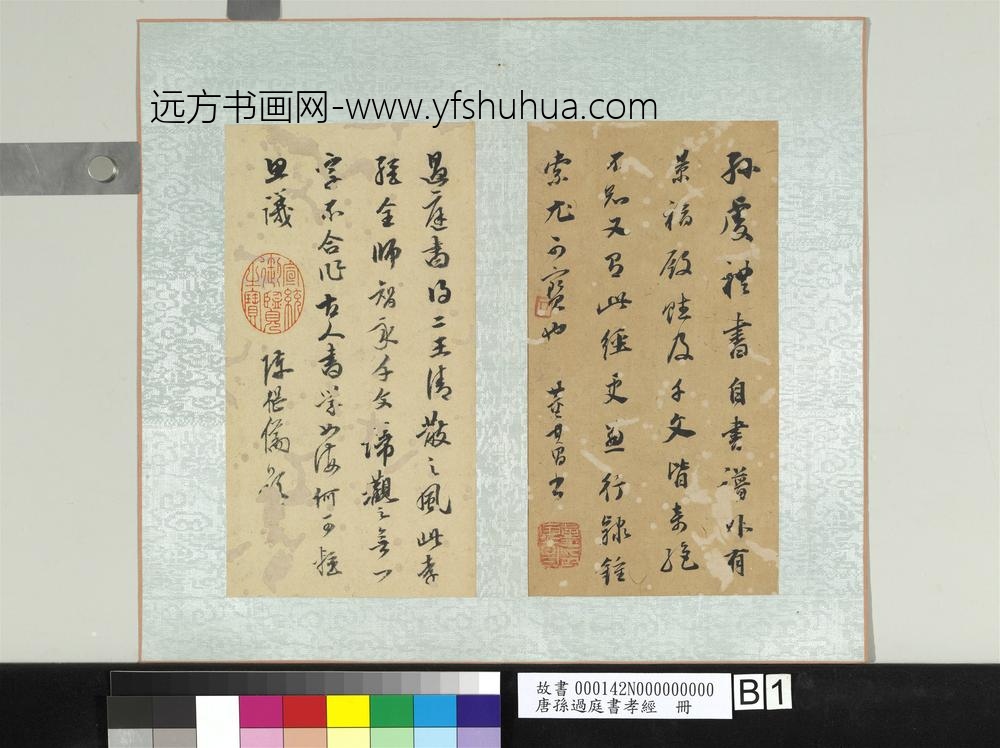 远方书画网-www.yfshuhua.com
孫虔禮書自書譜外有
景福殿賦及千文皆奇絕
不知又有此經更兼行隸鍾
索尤可寶也 董其昌書
過庭書得二王清散之風此孝
經全師智永千文諦觀之無一
字不合作古人書學如海何可輕
議 陳繼儒題
宣統御覽之寶
故書 000142N000000000
唐孫過庭書孝經 冊
B1